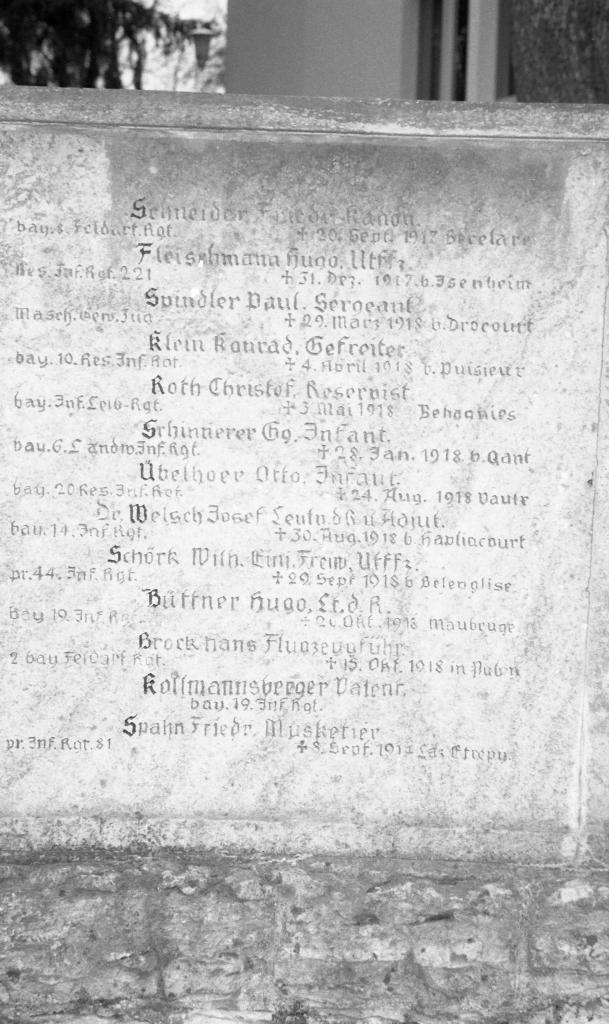 Schneider, Friedr. Kanon.
bay. 8. Feldart. Rgt. ✝ 20. Sept. 1917 Becelare
Fleischmann Hugo, Utffz.
Res. Inf. Rgt. 221 ✝ 31. Dez. 1917 b. Isenheim
Spindler Paul, Sergeant
Masch. Gew. Zug ✝ 29. März 1918 b. Drocourt
Klein Konrad, Gefreiter
bay. 10. Res. Inf. Rgt. ✝ 4. April 1918 b. Puisieur
Roth Christof, Reservist
bay. Inf. Leib-Rgt. ✝ 3. Mai 1918 Behagnies
Schinnerer Gg. Infant.
bay. 6. Landw. Inf. Rgt. ✝ 28. Jan. 1918 b. Gant
Übelhoer Otto, Infant.
bay. 20 Res. Inf. Rgt. ✝ 24. Aug. 1918 Vaulx
Dr. Welsch Josef Leutn. d. R. u. Adjut.
bay. 14. Inf. Rgt. ✝ 30. Aug. 1918 b. Haplincourt
Schörk Wilh. Einj. Freiw. Utffz.
pr. 44. Inf. Rgt. ✝ 29. Sept 1918 b Belenglise
Büttner Hugo, Lt. d. R.
bay 19. Inf. Rgt. Okt. 1918 Maubeuge
Brock Hans Flugzeugführ.
2 bay Feldart. Rgt. ✝ 15. Okt. 1918 in
Kollmannsberger Valent.
bay. 19. Inf. Rgt.
Spahn Friedr. Musketier
pr. Inf. Rgt. 81 ✝ 8. Sept. Laz Etrepy.